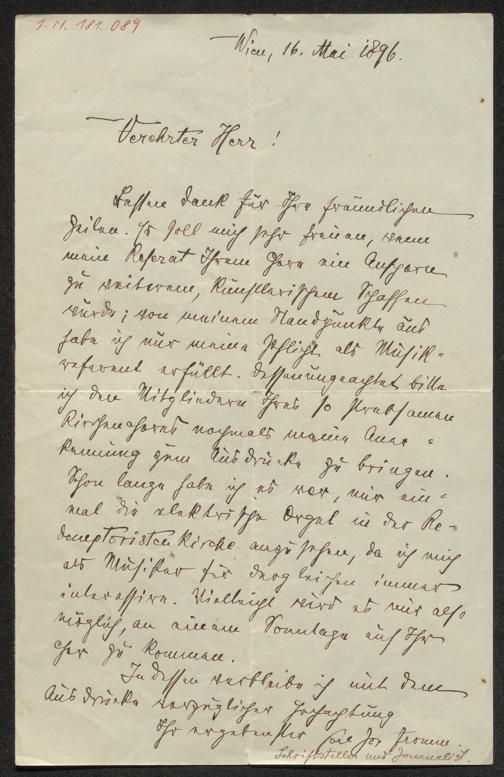 I.N. 181.089
Wien, 16. Mai 1896.
Verehrter Herr!
Besten Dank für Ihre freundlichen
Zeilen. Es soll mich sehr freuen, wenn
mein Referat Ihrem Chore ein Ansporn
zu weiterem, künstlerischem Schaffen
würde; von meinem Standpunkte aus
habe ich nur meine Pflicht als Musik-
referent erfüllt. Dessenungeachtet bitte
ich den Mitgliedern Ihres so strebsamen
Kirchenchores nochmals meine Aner-
kennung zum Ausdrucke zu bringen.
Schon lange habe ich es vor, mir ein-
mal die elektrische Orgel in der Re-
demptoristenkirche anzusehen, da ich mich
als Musiker für dergleichen immer
interessire. Vielleicht wird es mir also
möglich, an einem Sonntage auf Ihr
Chor zu kommen.
Indessen verbleibe ich mit dem
Ausdrucke vorzüglicher Hochachtung
Ihr ergebenster Carl Jos. Fromm
Schriftsteller und Journalist.